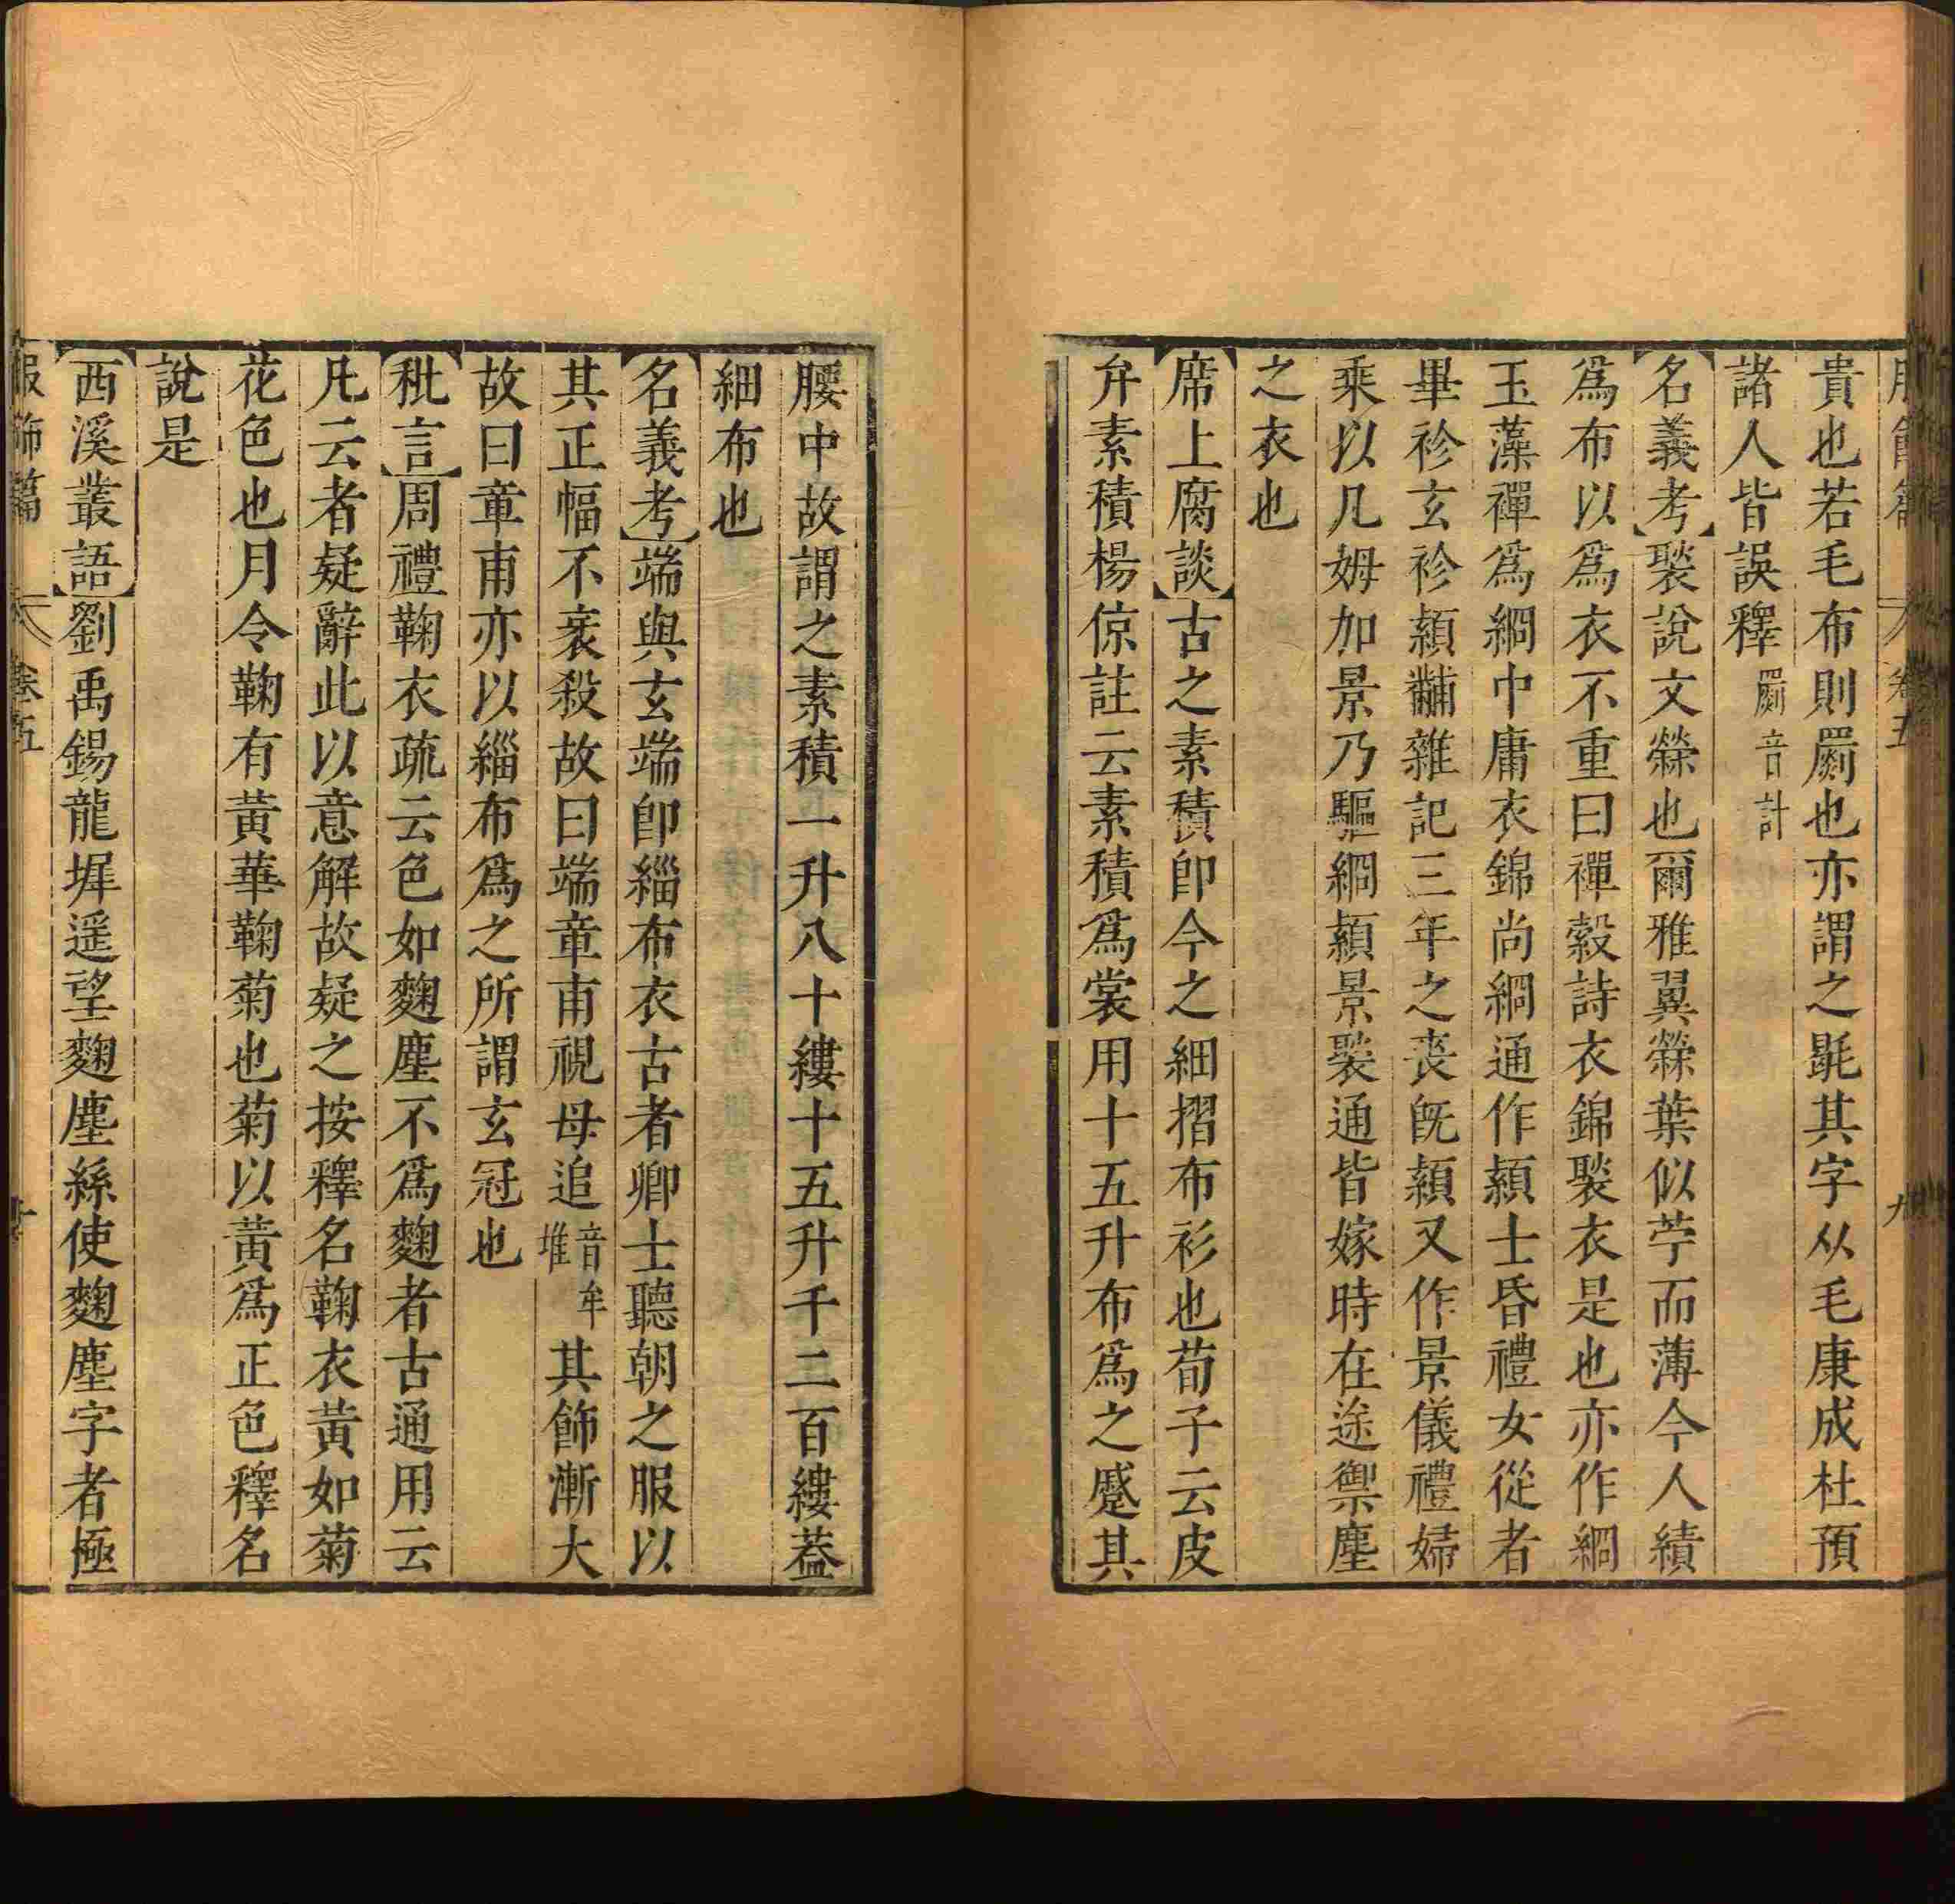 服飾篇 卷五 九
貴也若毛布則罽也亦謂之毾其字从毛康成杜預
諸人皆誤釋罽音計
【名義考】褧說文檾也爾雅翼檾葉似苧而薄今人績
爲布以爲衣不重曰襌縠詩衣錦褧衣是也亦作絅
玉藻襌爲絅中庸衣錦尚絅通作熲士昏禮女從者
畢袗玄袗熲黼雜記三年之喪旣熲又作景儀禮婦
乘以几姆加景乃驅絅熲景褧通皆嫁時在途禦塵
之衣也
【席上腐談】古之素積卽今之細摺布衫也荀子云皮
弁素積楊倞註云素積爲裳用十五升布爲之蹙其
腰中故謂之素積一升八十縷十五升千二百縷葢
細布也
【名義考】端與玄端卽緇布衣古者卿士聽朝之服以
其正幅不衺殺故曰端章甫視母追音牟堆其飾漸大
故曰章甫亦以緇布爲之所謂玄冠也
【秕言】周禮鞠衣疏云色如麴塵不爲麴者古通用云
凡云者疑辭此以意解故疑之按釋名鞠衣黃如菊
花色也月令鞠有黃華鞠菊也菊以黃爲正色釋名
說是
【西溪叢語】劉禹錫龍墀遥望麴塵絲使麴塵字者極
服飾篇 卷五 十